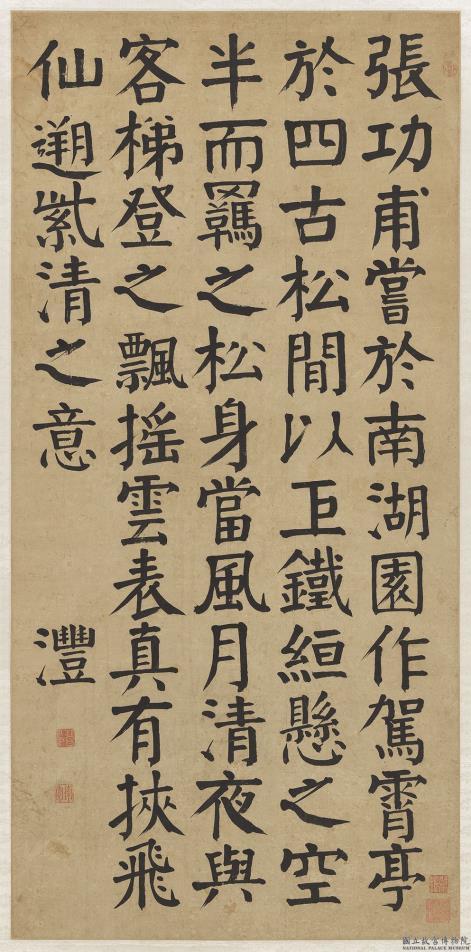 張功甫嘗於南湖園作駕霄亭
於四古松間以巨鐵絙懸之空
半而羈之松身當風月清夜與
客梯登之飄搖雲表真有挾飛
仙遡紫清之意
灃
國立故宮博物院
NATIONAL PALACE MUSEUM